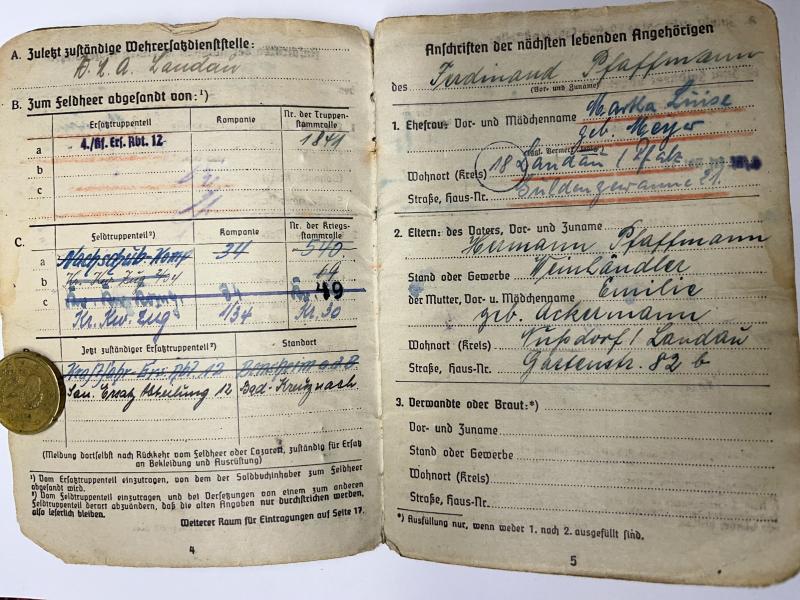 A. Zuletzt zuständige Wehrersatzdienststelle:
Landau
B. Zum Feldheer abgesandt von:¹)
Ersatztruppenteil
Kompanie
Nr. der Truppenstammrolle
a 4./Kf. Ers. Abt. 12 1841
b
b
c
C. Feldtruppenteil²)
Kompanie
Nr. der Kriegsstammrolle
a Nachschub-Komp 34 540
b 64
c 34 49
Kr. Kw. Zug 1/34 Kr. 30
Jetzt zuständiger Ersatztruppenteil²) Standort
San. Ersatz Abteilung 12 Bad-Kreuznach
(Meldung dortselbst nach Rückkehr vom Feldheer oder Lazarett, zuständig für Ersatz
an Bekleidung und Ausrüstung)
¹) Vom Ersatztruppenteil einzutragen, von dem der Soldbuchinhaber zum Feldheer
abgesandt wird.
²) Vom Feldtruppenteil einzutragen, und bei Versetzungen von einem zum anderen
Feldtruppenteil derart abzuändern, daß die alten Angaben nur durchstrichen werden,
also leserlich bleiben.
Weiterer Raum für Eintragungen auf Seite 17.
4
Anschriften der nächsten lebenden Angehörigen
des Ferdinand Pfaffmann
(Vor- und Zuname)
1. Ehefrau: Vor- und Mädchenname Martha Luise
geb. Meyer
Wohnort (Kreis) 18 Landau / Pfalz
Straße, Haus-Nr. Guldengewanne 21
2. Eltern: des Vaters, Vor- und Zuname
Hermann Pfaffmann
Stand oder Gewerbe Weinhändler
der Mutter, Vor- u. Mädchenname Emilie
geb. Ackermann
Wohnort (Kreis) Nußdorf / Landau
Straße, Haus-Nr. Gartenstr. 82 b
3. Verwandte oder Braut:*)
Vor- und Zuname
Stand oder Gewerbe
Wohnort (Kreis)
Straße, Haus-Nr.
*) Ausfüllung nur, wenn weder 1. noch 2. ausgefüllt sind.
5